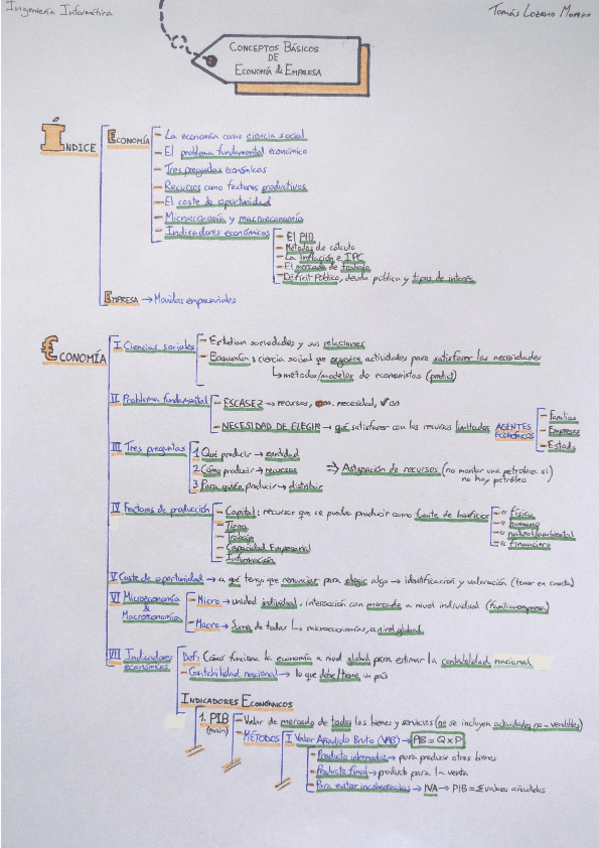 Ingeniería Informática
Tomás Lozano Moreno
CONCEPTOS BÁSICOS
DE
ECONOMÍA & EMPRESA
ÍNDICE
ECONOMÍA
La economía como ciencia social
El problema fundamental económico
Tres preguntas económicas
Recursos como factores productivos
El coste de oportunidad
Microeconomía y macroeconomía
Indicadores económicos
El PIB
Métodos de cálculo
La inflación e IPC
El mercado de trabajo
Déficit Público, deuda pública y tipos de interés
EMPRESA → Movidas empresariales
ECONOMÍA
I Ciencias sociales
Estudian sociedades y sus relaciones
Economía: ciencia social que organiza actividades para satisfacer las necesidades
↳ métodos/modelos de economistas (predict)
II Problema fundamental
ESCASEZ → recursos, necesidad, ✓∞
NECESIDAD DE ELEGIR → qué satisfacer con los recursos limitados
AGENTES ECONÓMICOS
Familias
Empresas
Estado
III Tres preguntas
1 Qué producir → cantidad
2 Cómo producir → recursos
3 Para quién producir → distribuir
⇒ Asignación de recursos (no montar una petrolera si
no hay petróleo
IV Factores de producción
Capital: recursos que se pueden producir como fuente de beneficio
" físico
" humano
" natural/ambiental
" financiero
Tierra
Trabajo
Capacidad Empresarial
Información
V Coste de oportunidad → a qué tengo que renunciar para elegir algo → identificación y valoración (tener en cuenta)
VI Microeconomía
&
Macroeconomía
Micro → unidad individual, interacción con mercado a nivel individual (familia-empresa)
Macro → Suma de todas ↳ microeconomías, a nivel global
VII Indicadores
económicos
Def: Cómo funciona la economía a nivel global para estimar la contabilidad nacional
Contabilidad nacional → lo que debe/tiene un país
INDICADORES ECONÓMICOS
1. PIB
Valor de mercado de todos los bienes y servicios (no se incluyen actividades no-vendibles)
MÉTODOS
I Valor Añadido Bruto (VAB) → PIB = Q×P
Producto intermedio → para producir otros bienes
Producto final → producto para la venta
Para evitar → IVA → PIB = Σ valores añadidos